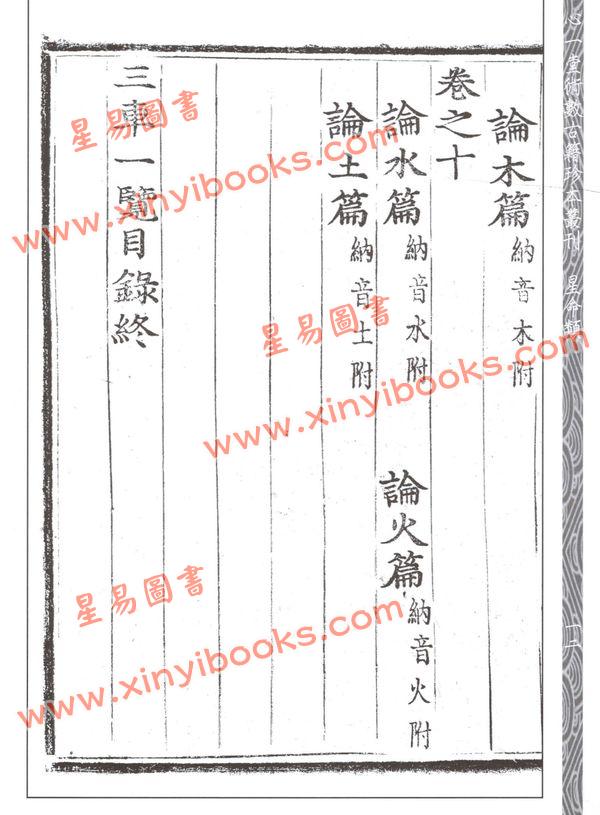 論木篇 納音木附
卷之十
論水篇 納音水附 論火篇 納音火附
論土篇 納音土附
三車一覽目錄終
心一堂術數古籍珍本叢刊 星命類
一二
星易圖書
www.xinyibooks.com
星易圖書
www.xinyibooks.com
星易圖書
www.xinyibooks.com